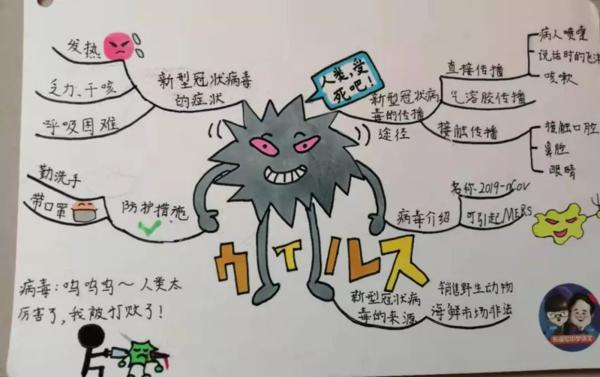 发热
乏力、干咳
呼吸困难
新型冠状病毒
的症状
勤洗手
带口罩
防护措施
人类,受
死吧!
新型冠状病
毒的传播
途径
直接传播
病人喷嚏
说话时的飞沫
咳软
气溶胶传播
接触传播
接触口腔
鼻腔
眼睛
病毒介绍
名称-2019-nCoV
可引起MERS
新型冠状病
毒的来源
销售野生动物
海鲜市场非法
ウイルス
病毒:呜呜呜~人类太
厉害了,我被打败了!